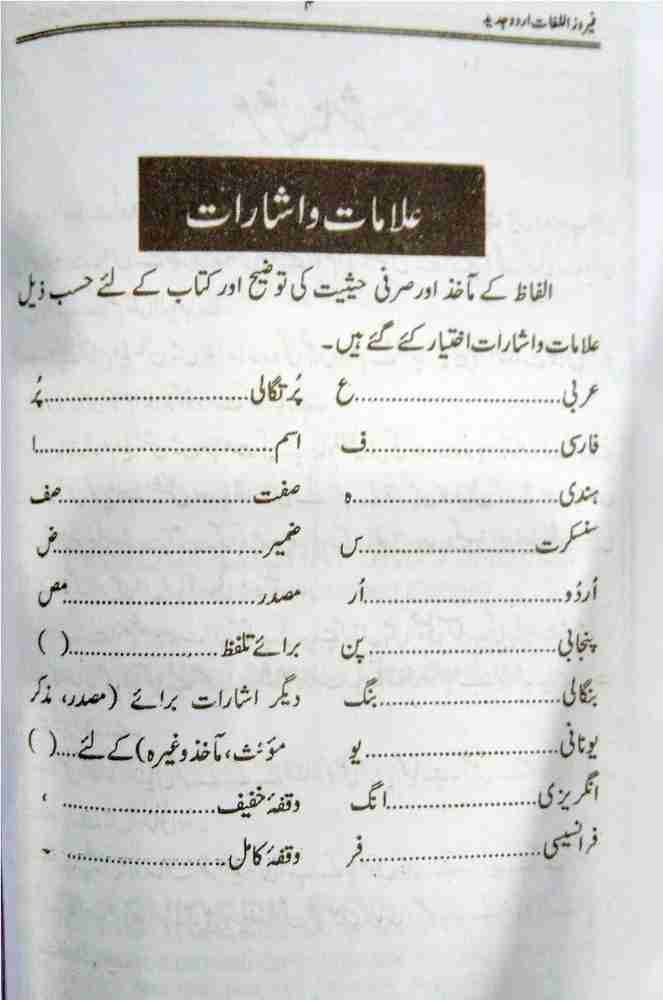 ۴
فیروز اللغات اردو جدید
علامات و اشارات
الفاظ کے مآخذ اور صرفی حیثیت کی توضیح اور کتاب کے لئے حسب ذیل
علامات و اشارات اختیار کئے گئے ہیں۔
عربی..............................ع پُرتگالی..............................پُر
فارسی..............................ف اسم..............................ا
ہندی..............................ہ صفت..............................صف
سنسکرت..............................س ضمیر..............................ض
اُردُو..............................اُر مصدر..............................مص
پنجابی..............................پن برائے تلفظ..............................( )
بنگالی..............................بنگ دیگر اشارات برائے (مصدر، مذکر
یونانی..............................یو مؤنث، مآخذ وغیرہ) کے لئے....( )
انگریزی..............................انگ وقفۂ خفیف..............................،
فرانسیسی..............................فر وقفۂ کامل..............................۔